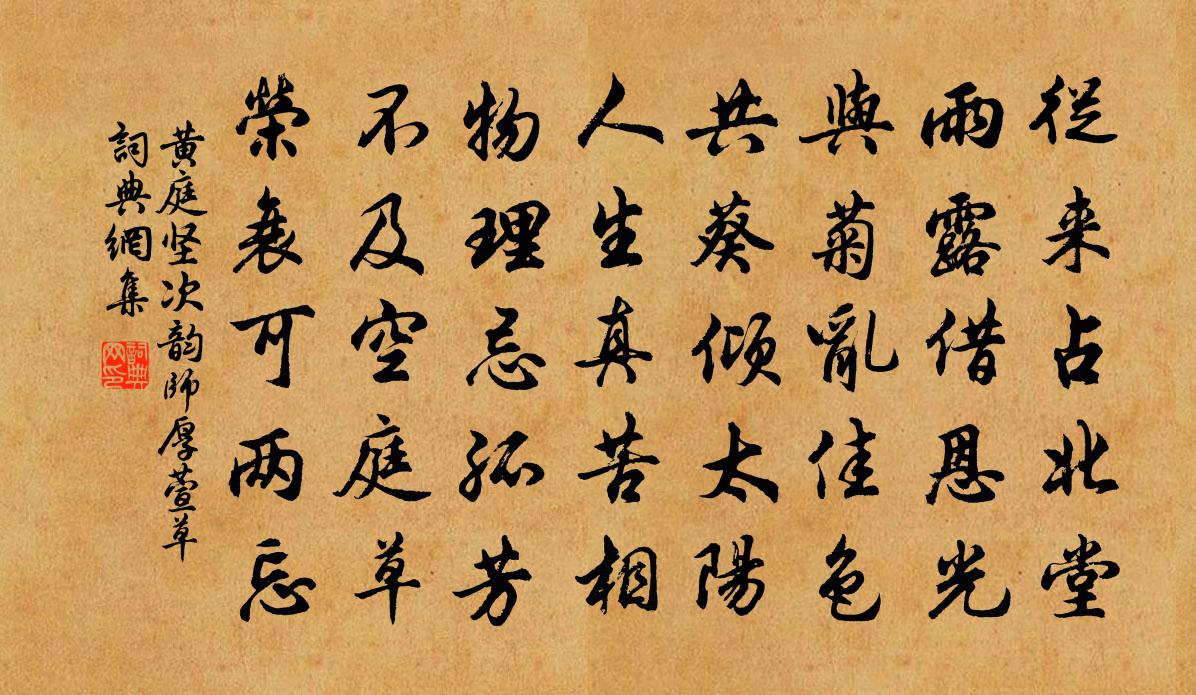 從来占北堂
雨露借恩光
與菊亂佳色
共葵傾太陽
人生真苦相
物理忌孤芳
不及空庭草
榮衰可两忘
黄庭坚次韵師厚萱草
詞典網集
詞典网印